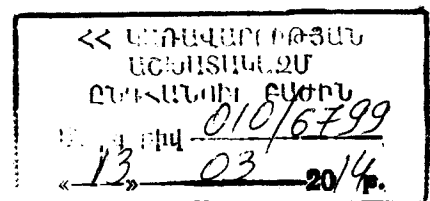 << ԿԱՌԱՎԱՐՈՒԹՅԱՆ
ԱՇԽԱՏԱԿԱԶՄ
ԸՆԴՀԱՆՈՒՐ ԲԱԺԻՆ
010/6799
«13» 03 2014թ.